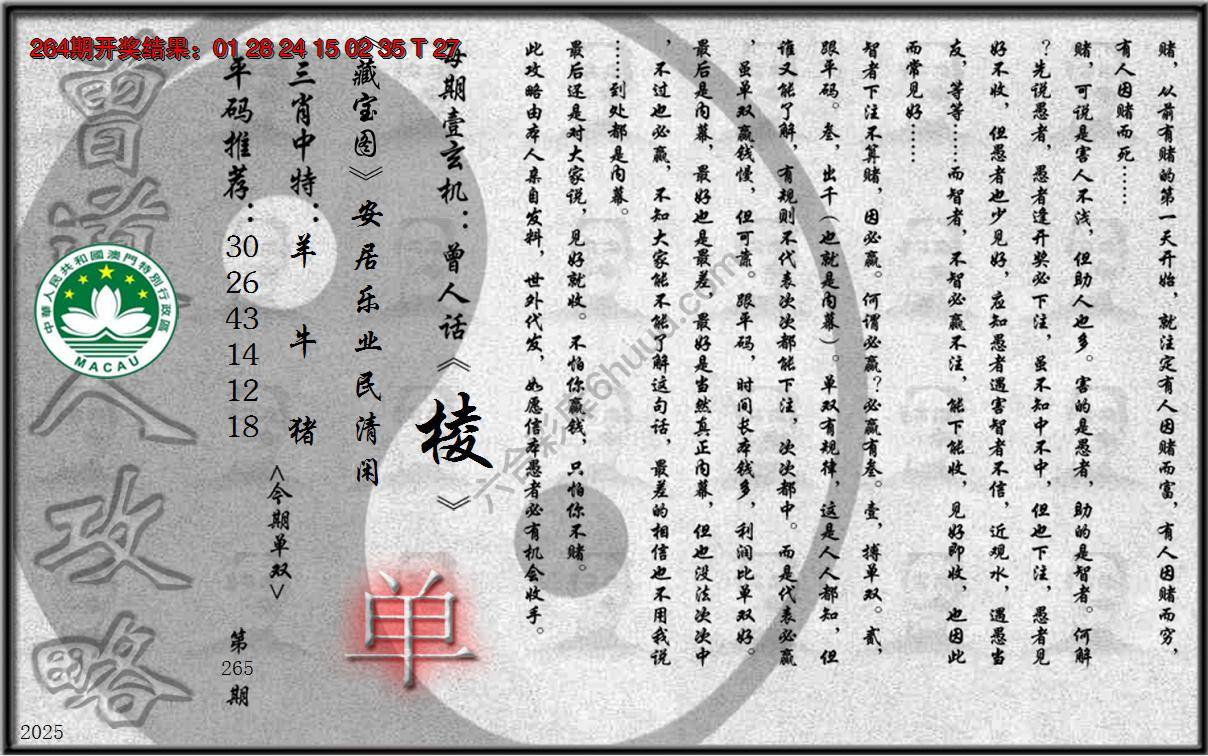 264期开奖结果：01 28 24 15 02 35 T 27
赌，从前有赌的第一天开始，就注定有人因赌而富，有人因赌而穷，
有人因赌而死……
赌，可说是害人不浅，但助人也多。害的是愚者，助的是智者。何解
？先说愚者，愚者逢开奖必下注，虽不知中不中，但也下注，愚者见
好不收，但愚者也少见好，应知愚者遇害智者不信，近观水，遇愚当
友，等等……而智者，不智必赢不注，能下能收，见好即收，也因此
而常见好……
智者下注不算赌，因必赢。何谓必赢？必赢有叁。壹，搏单双。贰，
跟平码。叁，出千（也就是内幕）。单双有规律，这是人人都知，但
谁又能了解，有规则不代表次次都能下注，次次都中。而是代表必赢
，虽单双赢钱慢，但可靠。跟平码，时间长本钱多，利润比单双好。
最后是内幕，最好也是最差，最好是当然真正内幕，但也没法次次中
，不过也必赢，不知大家能不能了解这句话，最差的相信也不用我说
……到处都是内幕。
最后还是对大家说，见好就收。不怕你赢钱，只怕你不赌。
此攻略由本人亲自发料，世外代发，如愿信本愚者必有机会收手。
每期壹玄机：曾人话《棱》
《藏宝图》安居乐业民清闲
单
三肖中特：羊 牛 猪
<今期单双>
平码推荐：
30
26
43
14
12
18
第
265
期
曾道人攻略
中華人民共和國澳門特別行政區
MACAU
六合彩库6huuu.com
2025